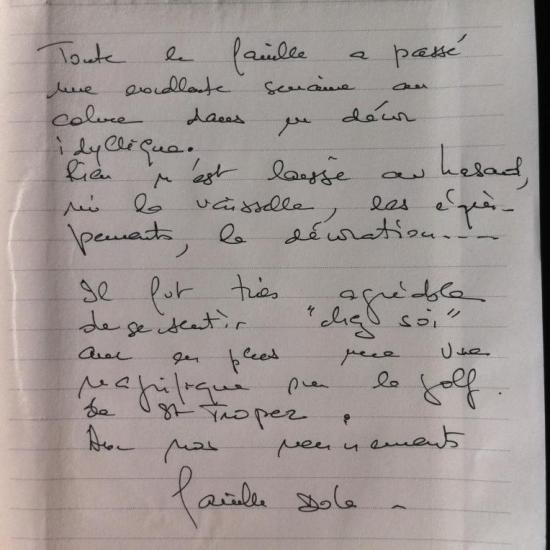 Toute la famille a passé
une excellente semaine au
calme dans un décor
idyllique.
Rien n'est laissé au hasard,
ni la vaisselle, les équi-
pements, la décoration----
Il fut très agréable
de se sentir "chez soi"
avec en plus une vue
magnifique sur le golf
de St Tropez.
Avec nos remerciements
famille